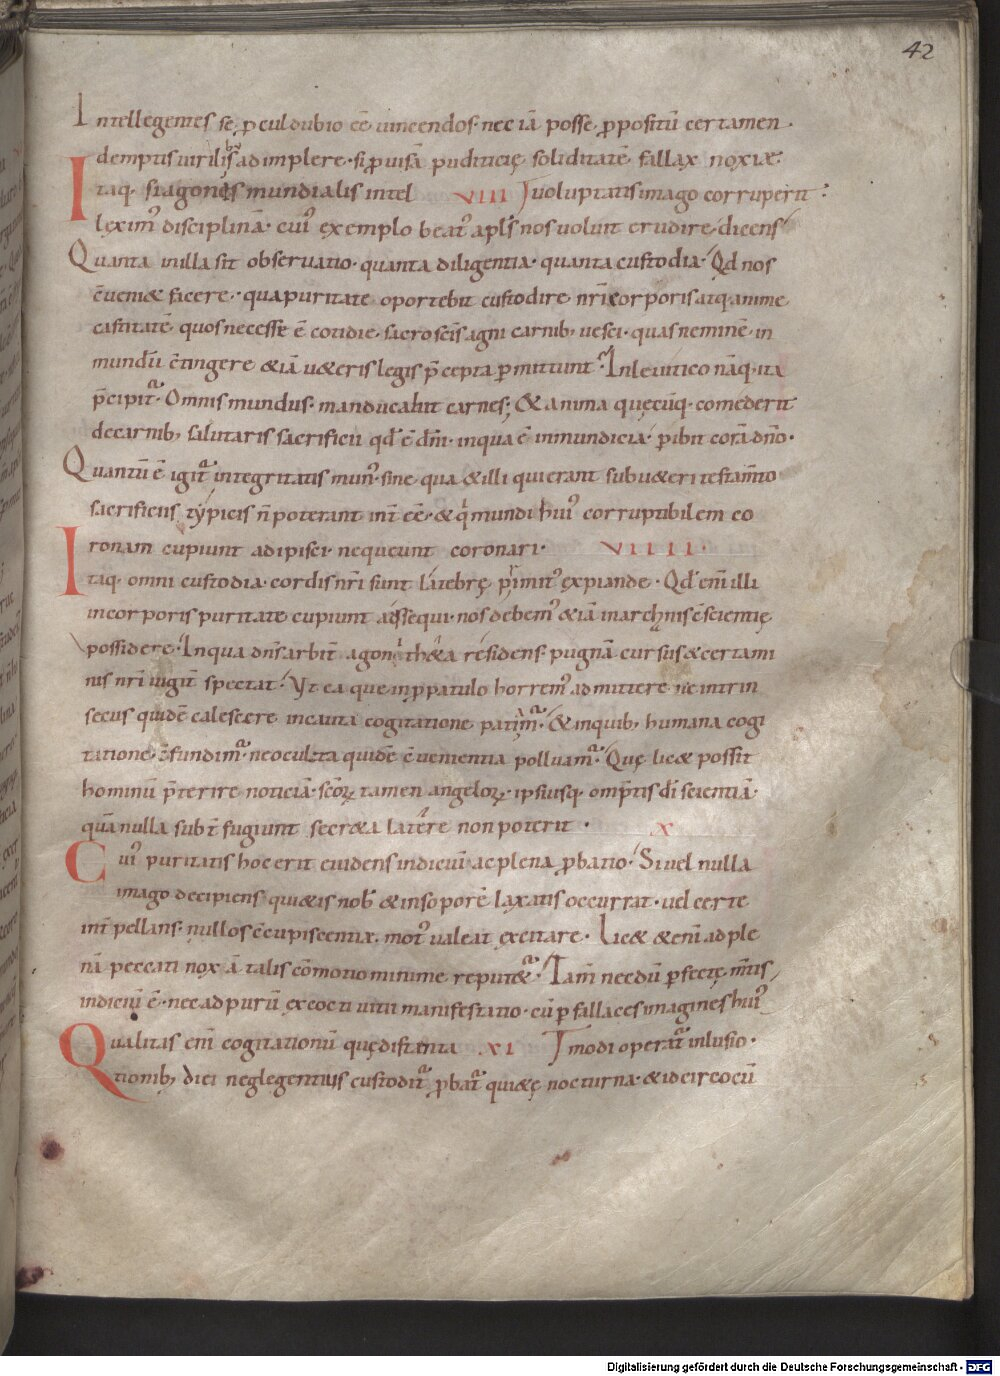 42
Intellegentes se ꝓcul dubio eē uincendos· nec iā posse ꝓpositū certamen·
demptis uirilibꝰ adimplere· si ꝓuisā pudicicię soliditatē fallax noxiæ
Itaq· si agonis mundialis intel VIII uoluptatis imago corruperit·
leximꝰ disciplinā· cuiꝰ exemplo beatꝰ apls nos uoluit erudire/ dicens
Quanta in illa sit obseruatio· quanta diligentia· quanta custodia· Qd nos
c̄uenit& facere· qua puritate oportebit custodire nr̄i corporis atq· anime
castitatē quos necesse ē cotidie· sacroscīs agni carnib; uesci· quas neminē in
mundū c̄tingere &iā u&eris legis p̄cepta ꝑmittunt· In leuitico nāq· ita
p̄cipit̄· Omnis mundus· manducabit carnes; & anima quęcūq· comederit
de carnib; salutaris sacrificii qd̄ ē dn̄i· in qua ē inmundicia· ꝑibit corā dn̄o·
Quantū ē igit̄ integritatis munꝰ· sine qua &illi qui erant sub u&eri testam̄to
sacrificiis typicis n̄ poterant int̄ eē· & qui mundi huiꝰ corruptibilem co
ronam cupiunt adipisci· nequeunt coronari· VIIII·
Itaq· omni custodia· cordis nr̄i sunt latebrę primitꝰ expiande· Qd̄ enī illi
in corporis puritate cupiunt assequi· nos debemꝰ &iā in archanis c̄scientię
possidere· In qua dn̄s arbit̄ agonith&a residens· pugnā cursus &certami
nis nr̄i iugit̄ spectat· Vt ea que in ꝓpatulo horremꝰ admittere· ne intrin
secus quidē calescere incauta cogitatione patiam̄· & in quib; humana cogi
tatione c̄fundim̄· ne occulta quidē c̄uenientia polluam̄· Quę lic& possit
hominū p̄terire noticiā· scōꝝ tamen angeloꝝ· ipsiusq· omp̄tis dī scientiā·
quā nulla subt̄fugiunt secr&a latere non poterit· X
Cuiꝰ puritatis hoc erit euidens indiciū ac plena ꝓbatio· Si uel nulla
imago decipiens qui&is nobis & in soporē laxatis occurrat· uel certe
int̄pellans· nullos c̄cupiscentiæ motꝰ ualeat excitare· Lic& &enī ad ple
nā peccati noxā talis cōmotio minime reput&ur· Tam̄ necdū ꝑfectę m̄tis
indiciū ē· nec ad purū excocti uitii manifestatio· cū ꝑ fallaces imagines huiꝰ
Qualitas enī cogitationū quę distanta XI modi operat̄ inlusio·
tionib; diei neglegentius custodit̄ ꝓbat̄ qui&ę nocturna· &idcirco cū
Digitalisierung gefördert durch die Deutsche Forschungsgemeinschaft · DFG